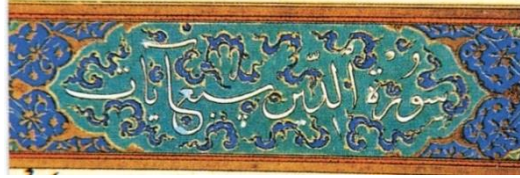 سورة الدين سبع آيات